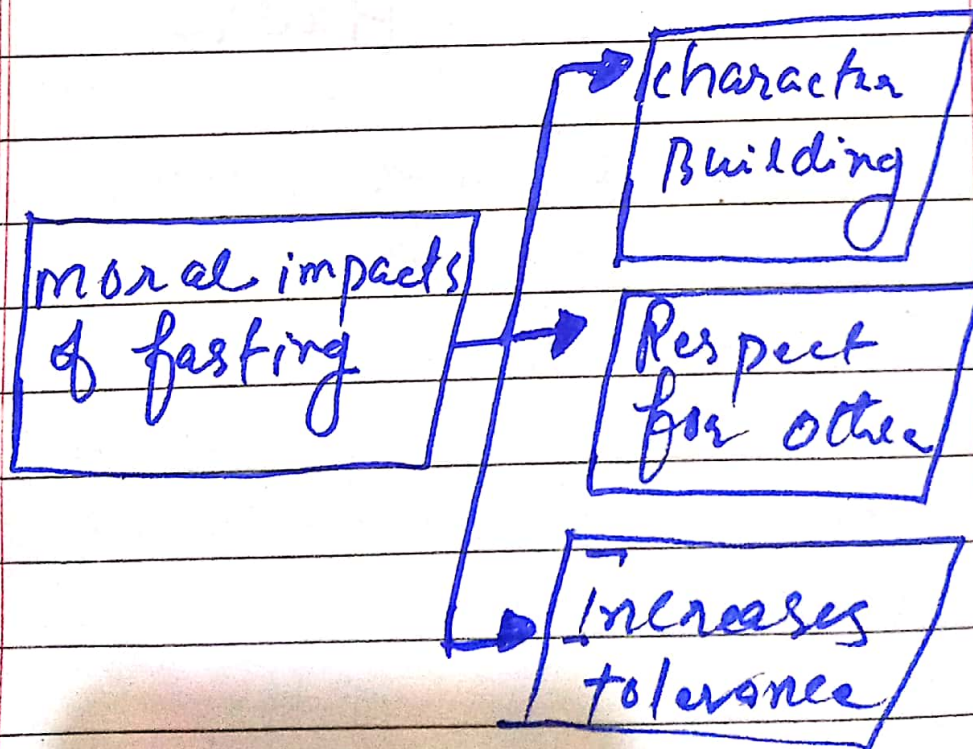 moral impacts
of fasting
character
Building
Respect
for other
Increases
tolerance